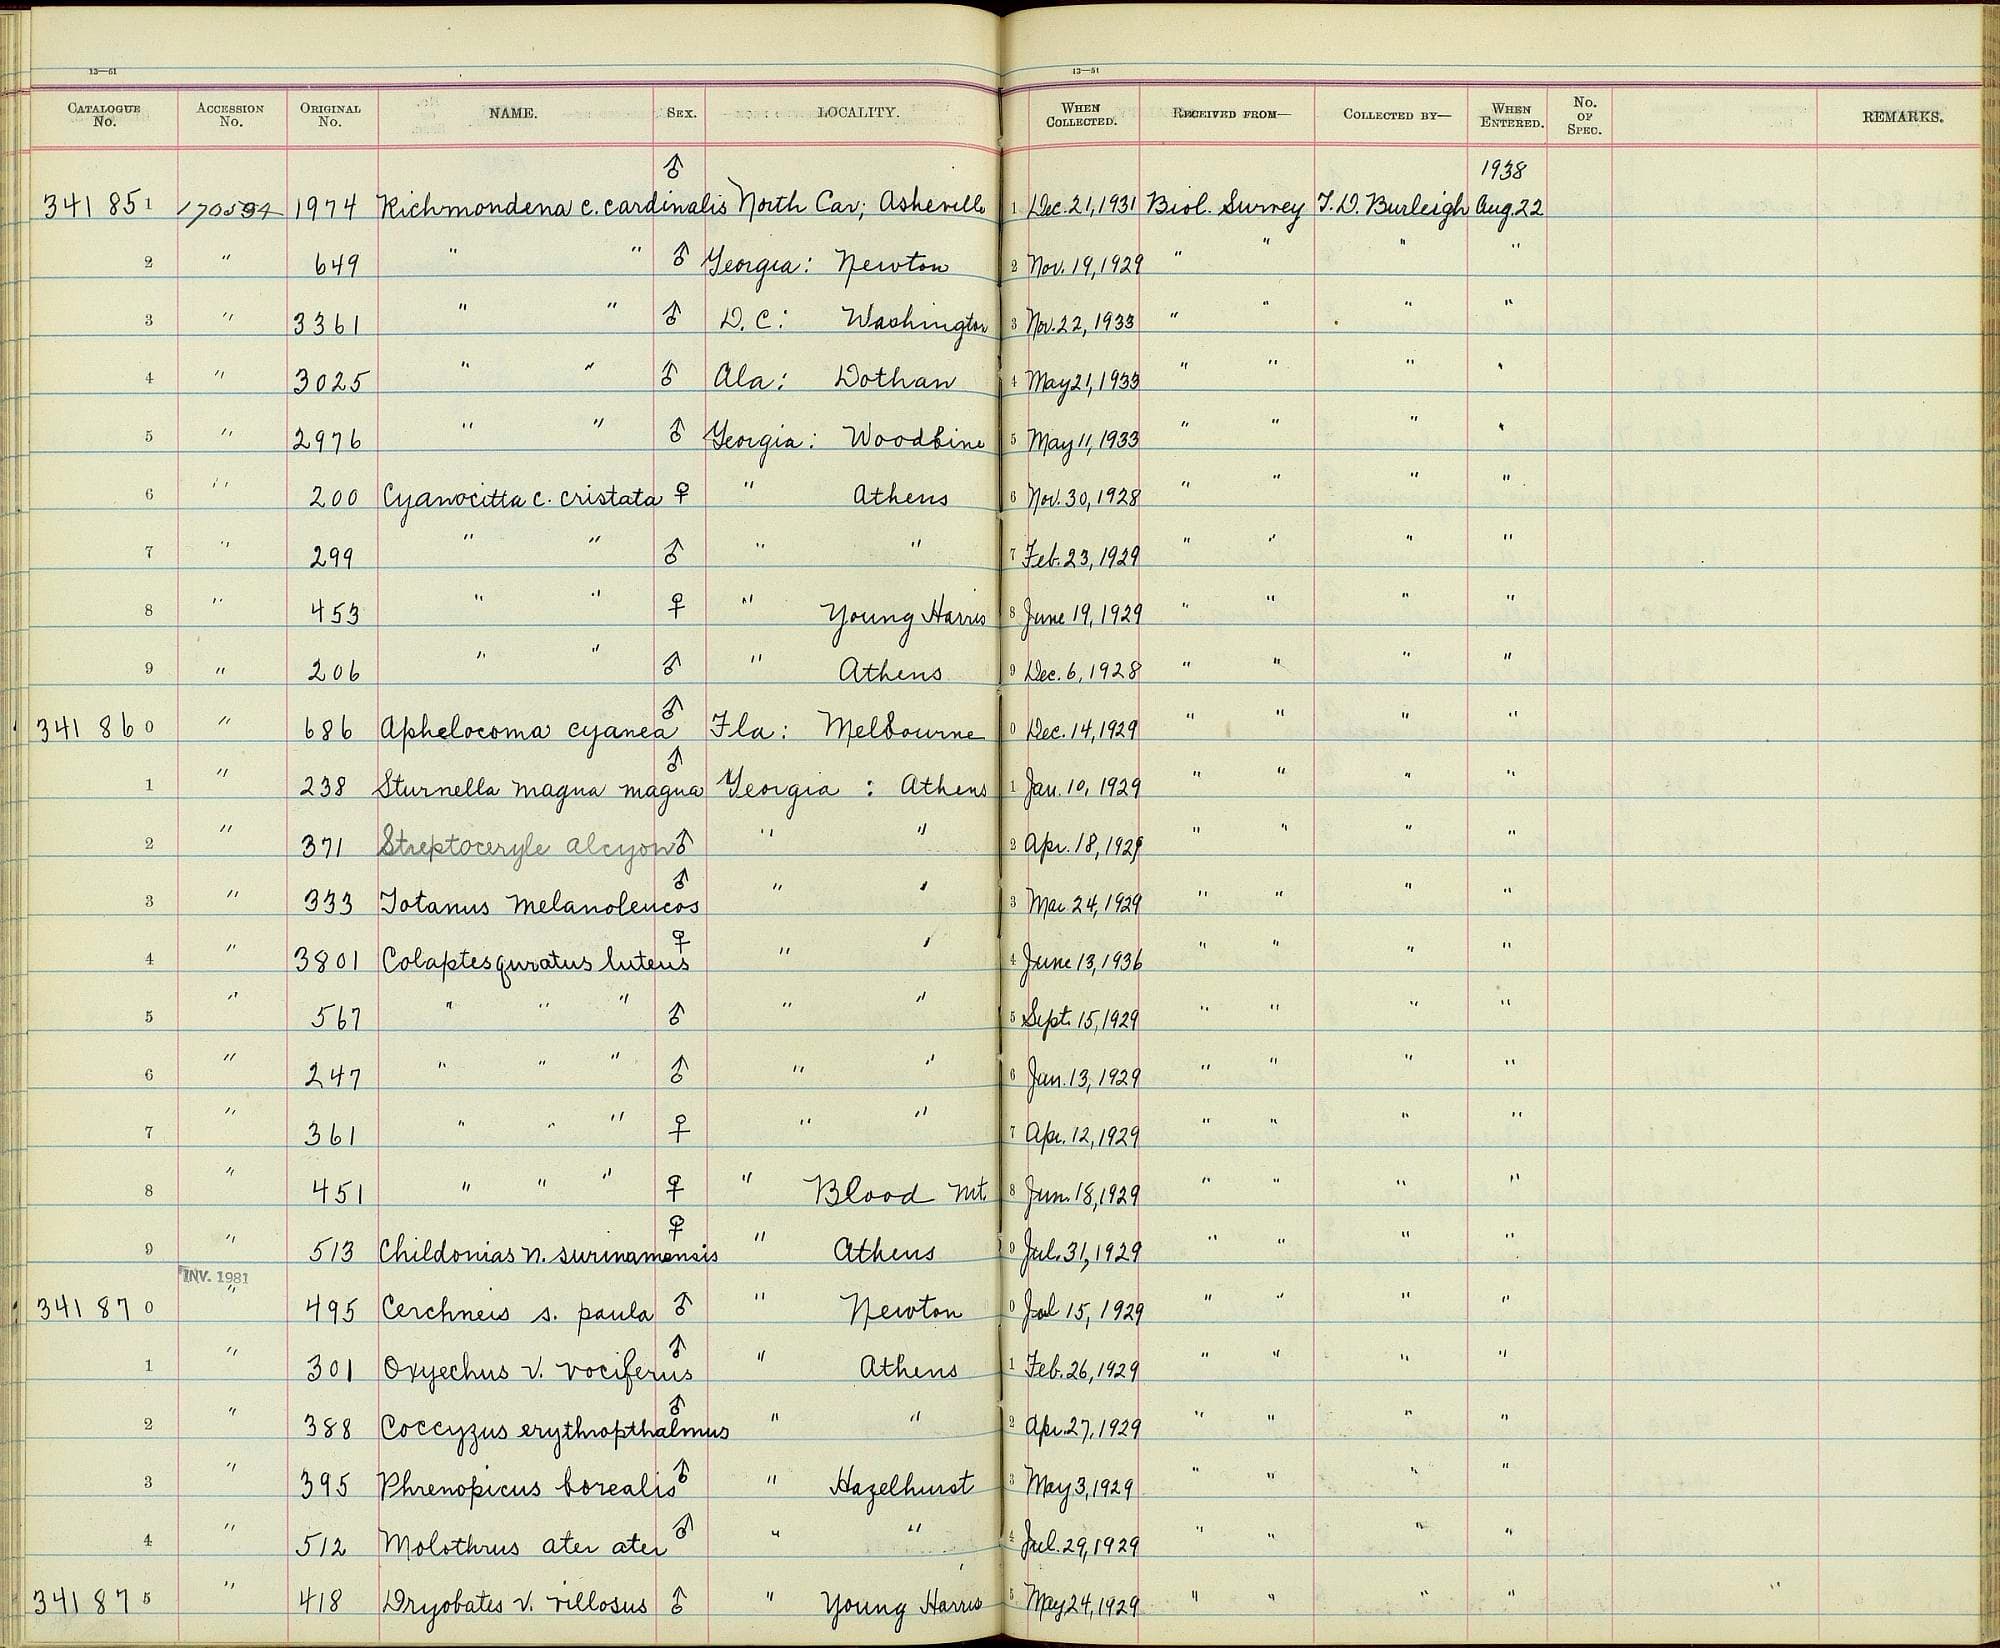 13—51 13—51
CATALOGUE No. ACCESSION No. ORIGINAL No. NAME. SEX. LOCALITY. WHEN COLLECTED. RECEIVED FROM— COLLECTED BY— WHEN ENTERED. No. OF SPEC. REMARKS.
♂ 1938
341 851 170594 1974 Richmondena c. cardinalis North Car; Asheville 1 Dec. 21, 1931 Biol. Survey T. D. Burleigh Aug. 22
2 " 649 " " ♂ Georgia: Newton 2 Nov. 19, 1929 " " " "
3 " 3361 " " ♂ D. C: Washington 3 Nov. 22, 1933 " " " "
4 " 3025 " " ♂ Ala: Dothan 4 May 21, 1933 " " " "
5 " 2976 " " ♂ Georgia: Woodbine 5 May 11, 1933 " " " "
6 " 200 Cyanocitta c. cristata ♀ " Athens 6 Nov. 30, 1928 " " " "
7 " 299 " " ♂ " " 7 Feb. 23, 1929 " " " "
8 " 453 " " ♀ " Young Harris 8 June 19, 1929 " " " "
9 " 206 " " ♂ " Athens 9 Dec. 6, 1928 " " " "
341 860 " 686 Aphelocoma cyanea ♂ Fla: Melbourne 0 Dec. 14, 1929 " " " "
1 " 238 Sturnella magna magna ♂ Georgia: Athens 1 Jan. 10, 1929 " " " "
2 " 371 Streptoceryle alcyon ♂ " " 2 Apr. 18, 1929 " " " "
3 " 333 Totanus melanoleucos ♂ " " 3 Mar. 24, 1929 " " " "
4 " 3801 Colaptes auratus luteus ♀ " " 4 June 13, 1936 " " " "
5 " 567 " " " ♂ " " 5 Sept. 15, 1929 " " " "
6 " 247 " " " ♂ " " 6 Jan. 13, 1929 " " " "
7 " 361 " " " ♀ " " 7 Apr. 12, 1929 " " " "
8 " 451 " " " ♀ " Blood Mt. 8 Jun. 18, 1929 " " " "
9 " 513 Childonias n. surinamensis ♀ " Athens 9 Jul. 31, 1929 " " " "
INV. 1981
341 870 " 495 Cerchneis s. paula ♂ " Newton 0 Jul 15, 1929 " " " "
1 " 301 Oxyechus v. vociferus ♂ " Athens 1 Feb. 26, 1929 " " " "
2 " 388 Coccyzus erythropthalmus ♂ " " 2 Apr. 27, 1929 " " " "
3 " 395 Phrenopicus borealis ♂ " Hazelhurst 3 May 3, 1929 " " " "
4 " 512 Molothrus ater ater ♂ " " 4 Jul. 29, 1929 " " " "
341 875 " 418 Dryobates v. villosus ♂ " Young Harris 5 May 24, 1929 " " " " "